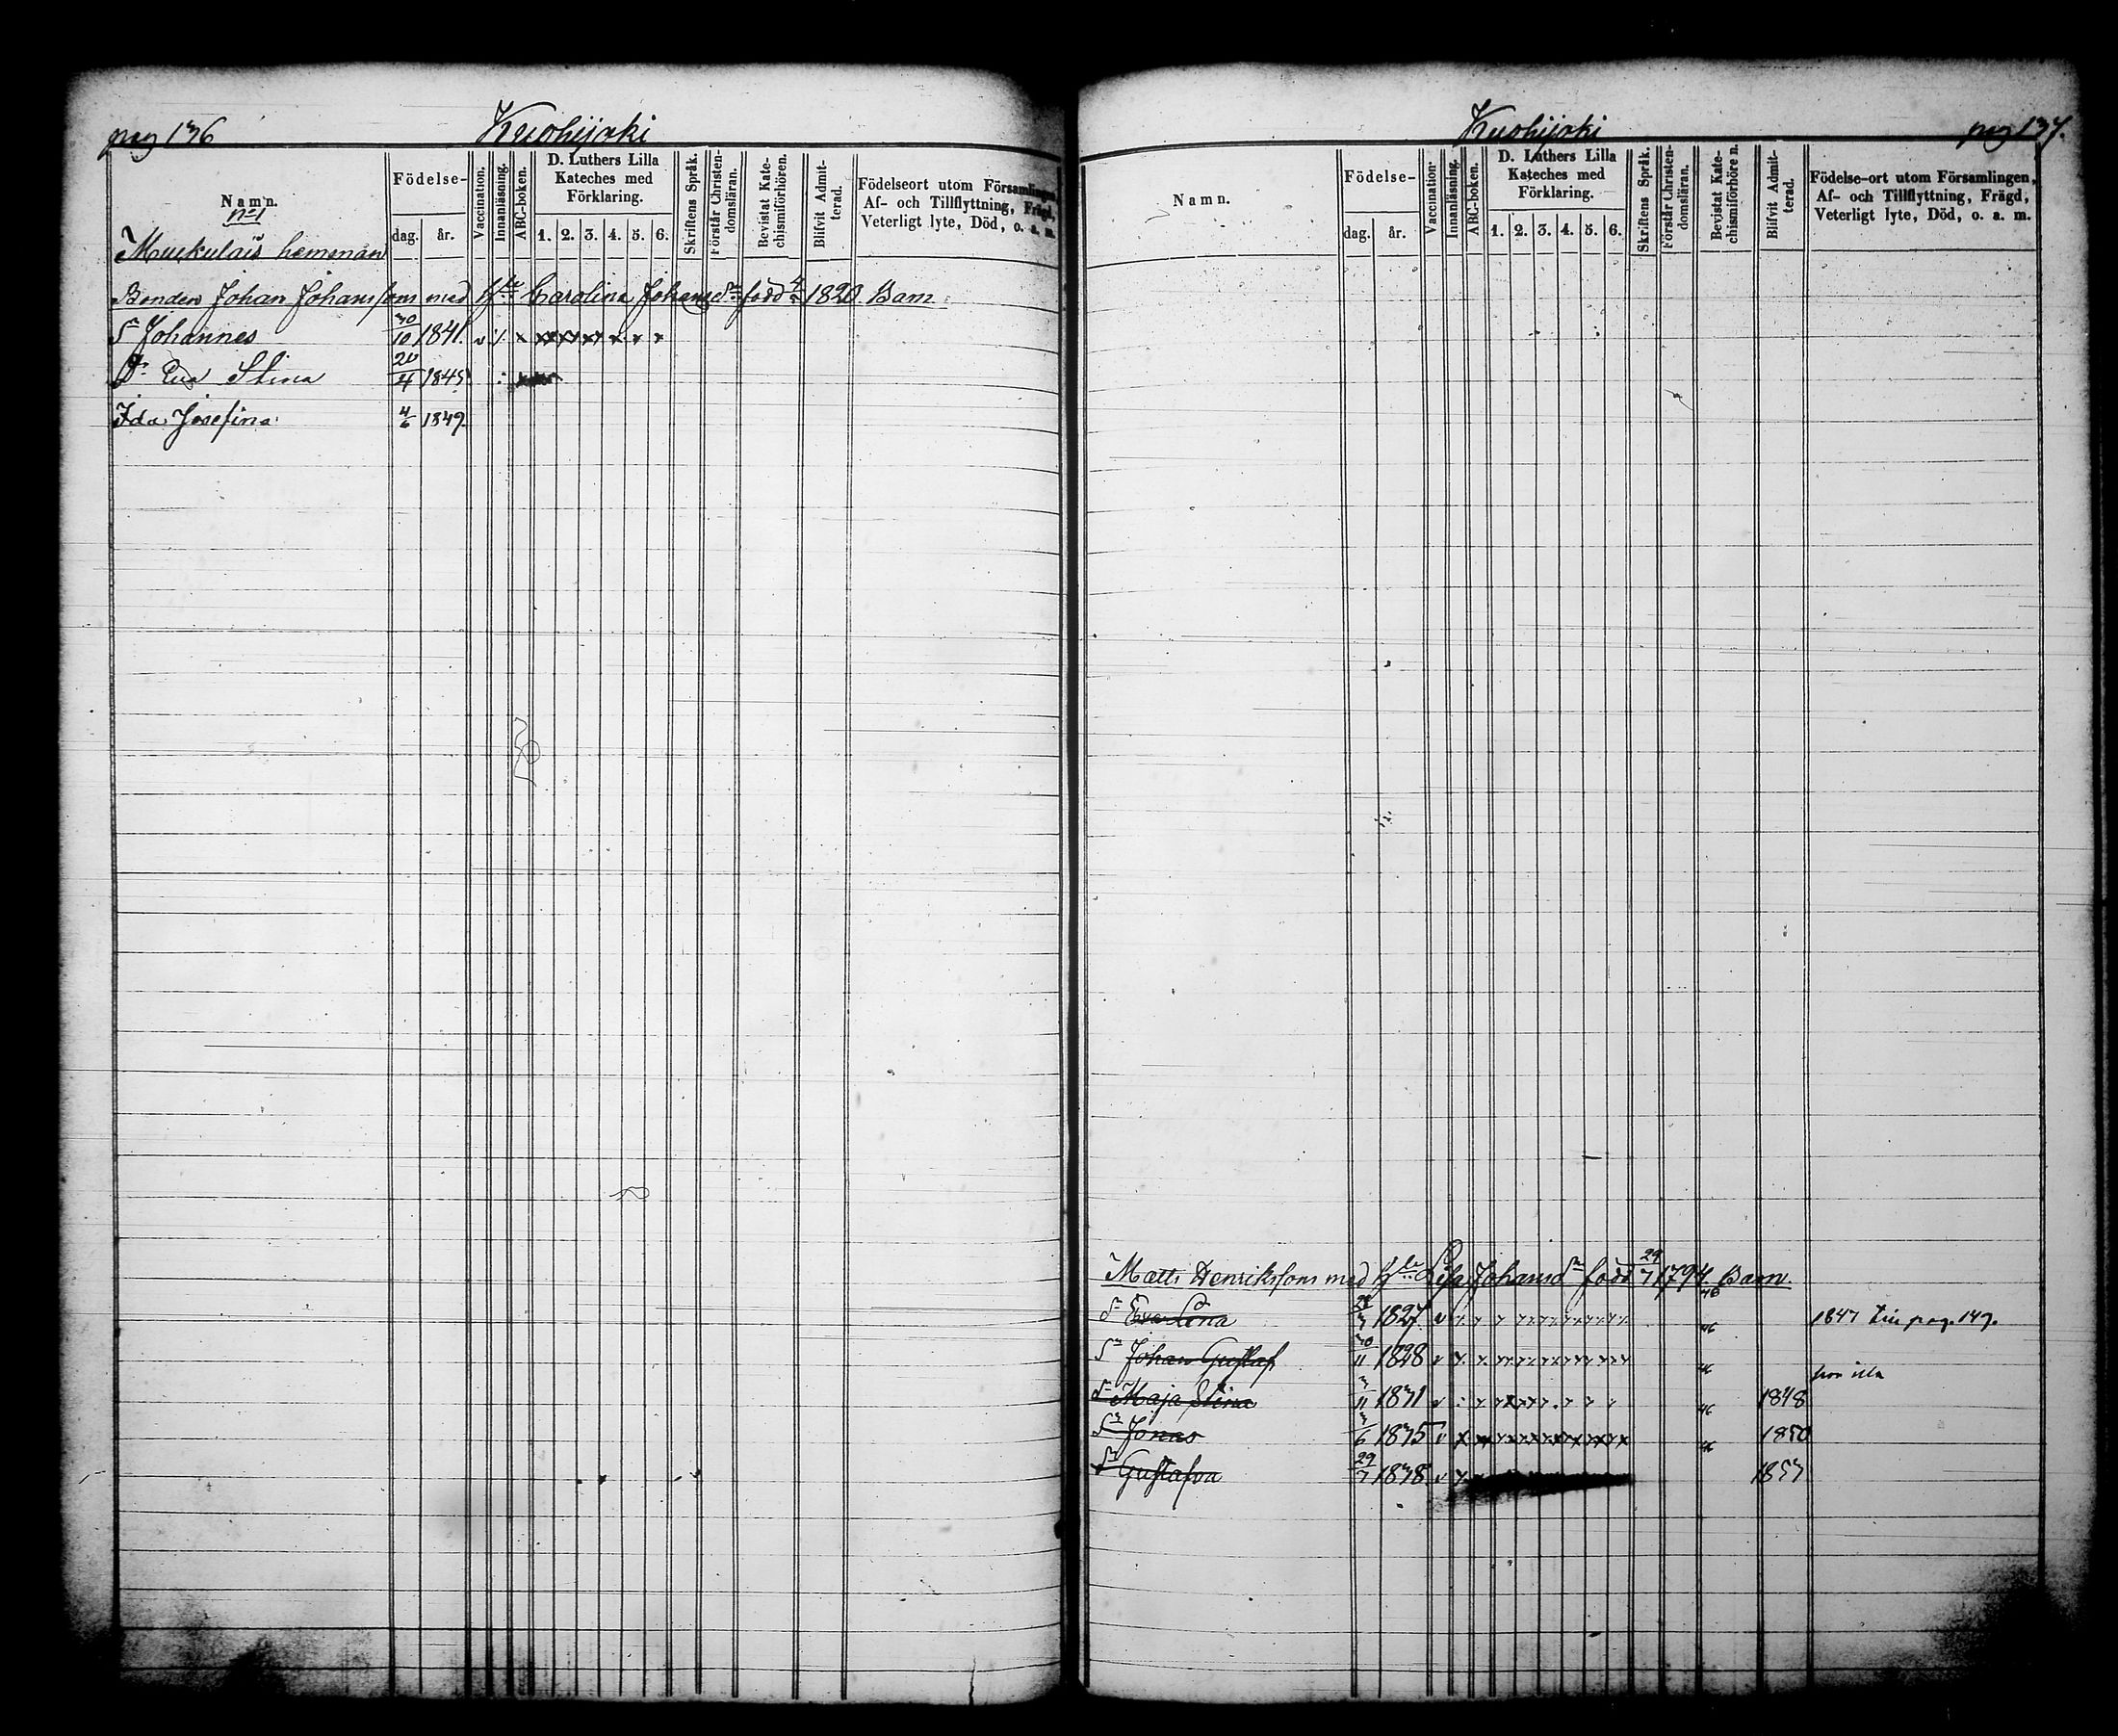 pag 136
Kuohijoki
Namn.
Födelse-
dag.
år.
Vaccination.
Innanläsning.
ABC-boken.
D. Luthers Lilla
Kateches med
Förklaring.
1. 2. 3. 4. 5. 6.
Skriftens Språk.
Förstår Christen-
domsläran.
Bevistat Kate-
chismiförhören.
Blifvit Admit-
terad.
Födelseort utom Församlingen,
Af- och Tillflyttning, Frägd,
Veterligt lyte, Död, o. a. m.
No 1
hemman
Bonden Johan Johansson med Carolina Johansdr född 1820 Barn
Johannes 30/10 1841
Eva Stina 20/4 1845
Ida Josefina 4/6 1849
Kuohijoki
pag 137.
Namn.
Födelse-
dag.
år.
Vaccination.
Innanläsning.
ABC-boken.
D. Luthers Lilla
Kateches med
Förklaring.
1. 2. 3. 4. 5. 6.
Skriftens Språk.
Förstår Christen-
domsläran.
Bevistat Kate-
chismiförhören.
Blifvit Admit-
terad.
Födelse-ort utom Församlingen,
Af- och Tillflyttning, Frägd,
Veterligt lyte, Död, o. a. m.
Matts Henriksson med Lisa Johansdr född 29/7 1794 Barn.
Eva Lena 1827 46 1847 pag. 149.
Johan Gustaf 30/11 1828 46
Maja Stina 3/11 1831 46 1848
Jonas 3/6 1835 46 1850
Gustafva 29/7 1838 1853